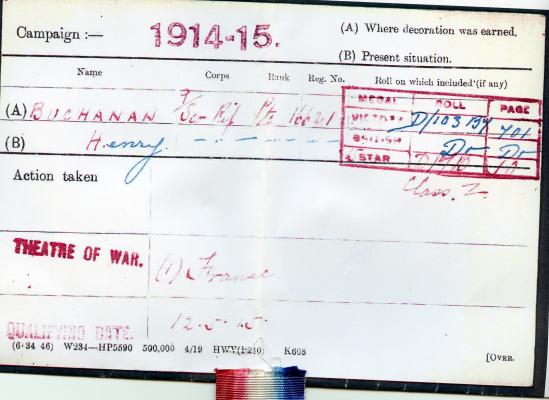 Campaign :— 1914-15. (A) Where decoration was earned.
(B) Present situation.
Name Corps Rank Reg. No. Roll on which included (if any)
MEDAL ROLL PAGE
(A) BUCHANAN 7/Sc. Rif Pte 16621
VICTORY D/103 B4 701
(B) Henry - " - " - " - BRITISH Do Do
STAR
Class. Z.
Action taken
THEATRE OF WAR. (1) France
QUALIFYING DATE. 12-5-15
(6·34 46) W234—HP5590 500,000 4/19 HWV(P240) K608
[OVER.